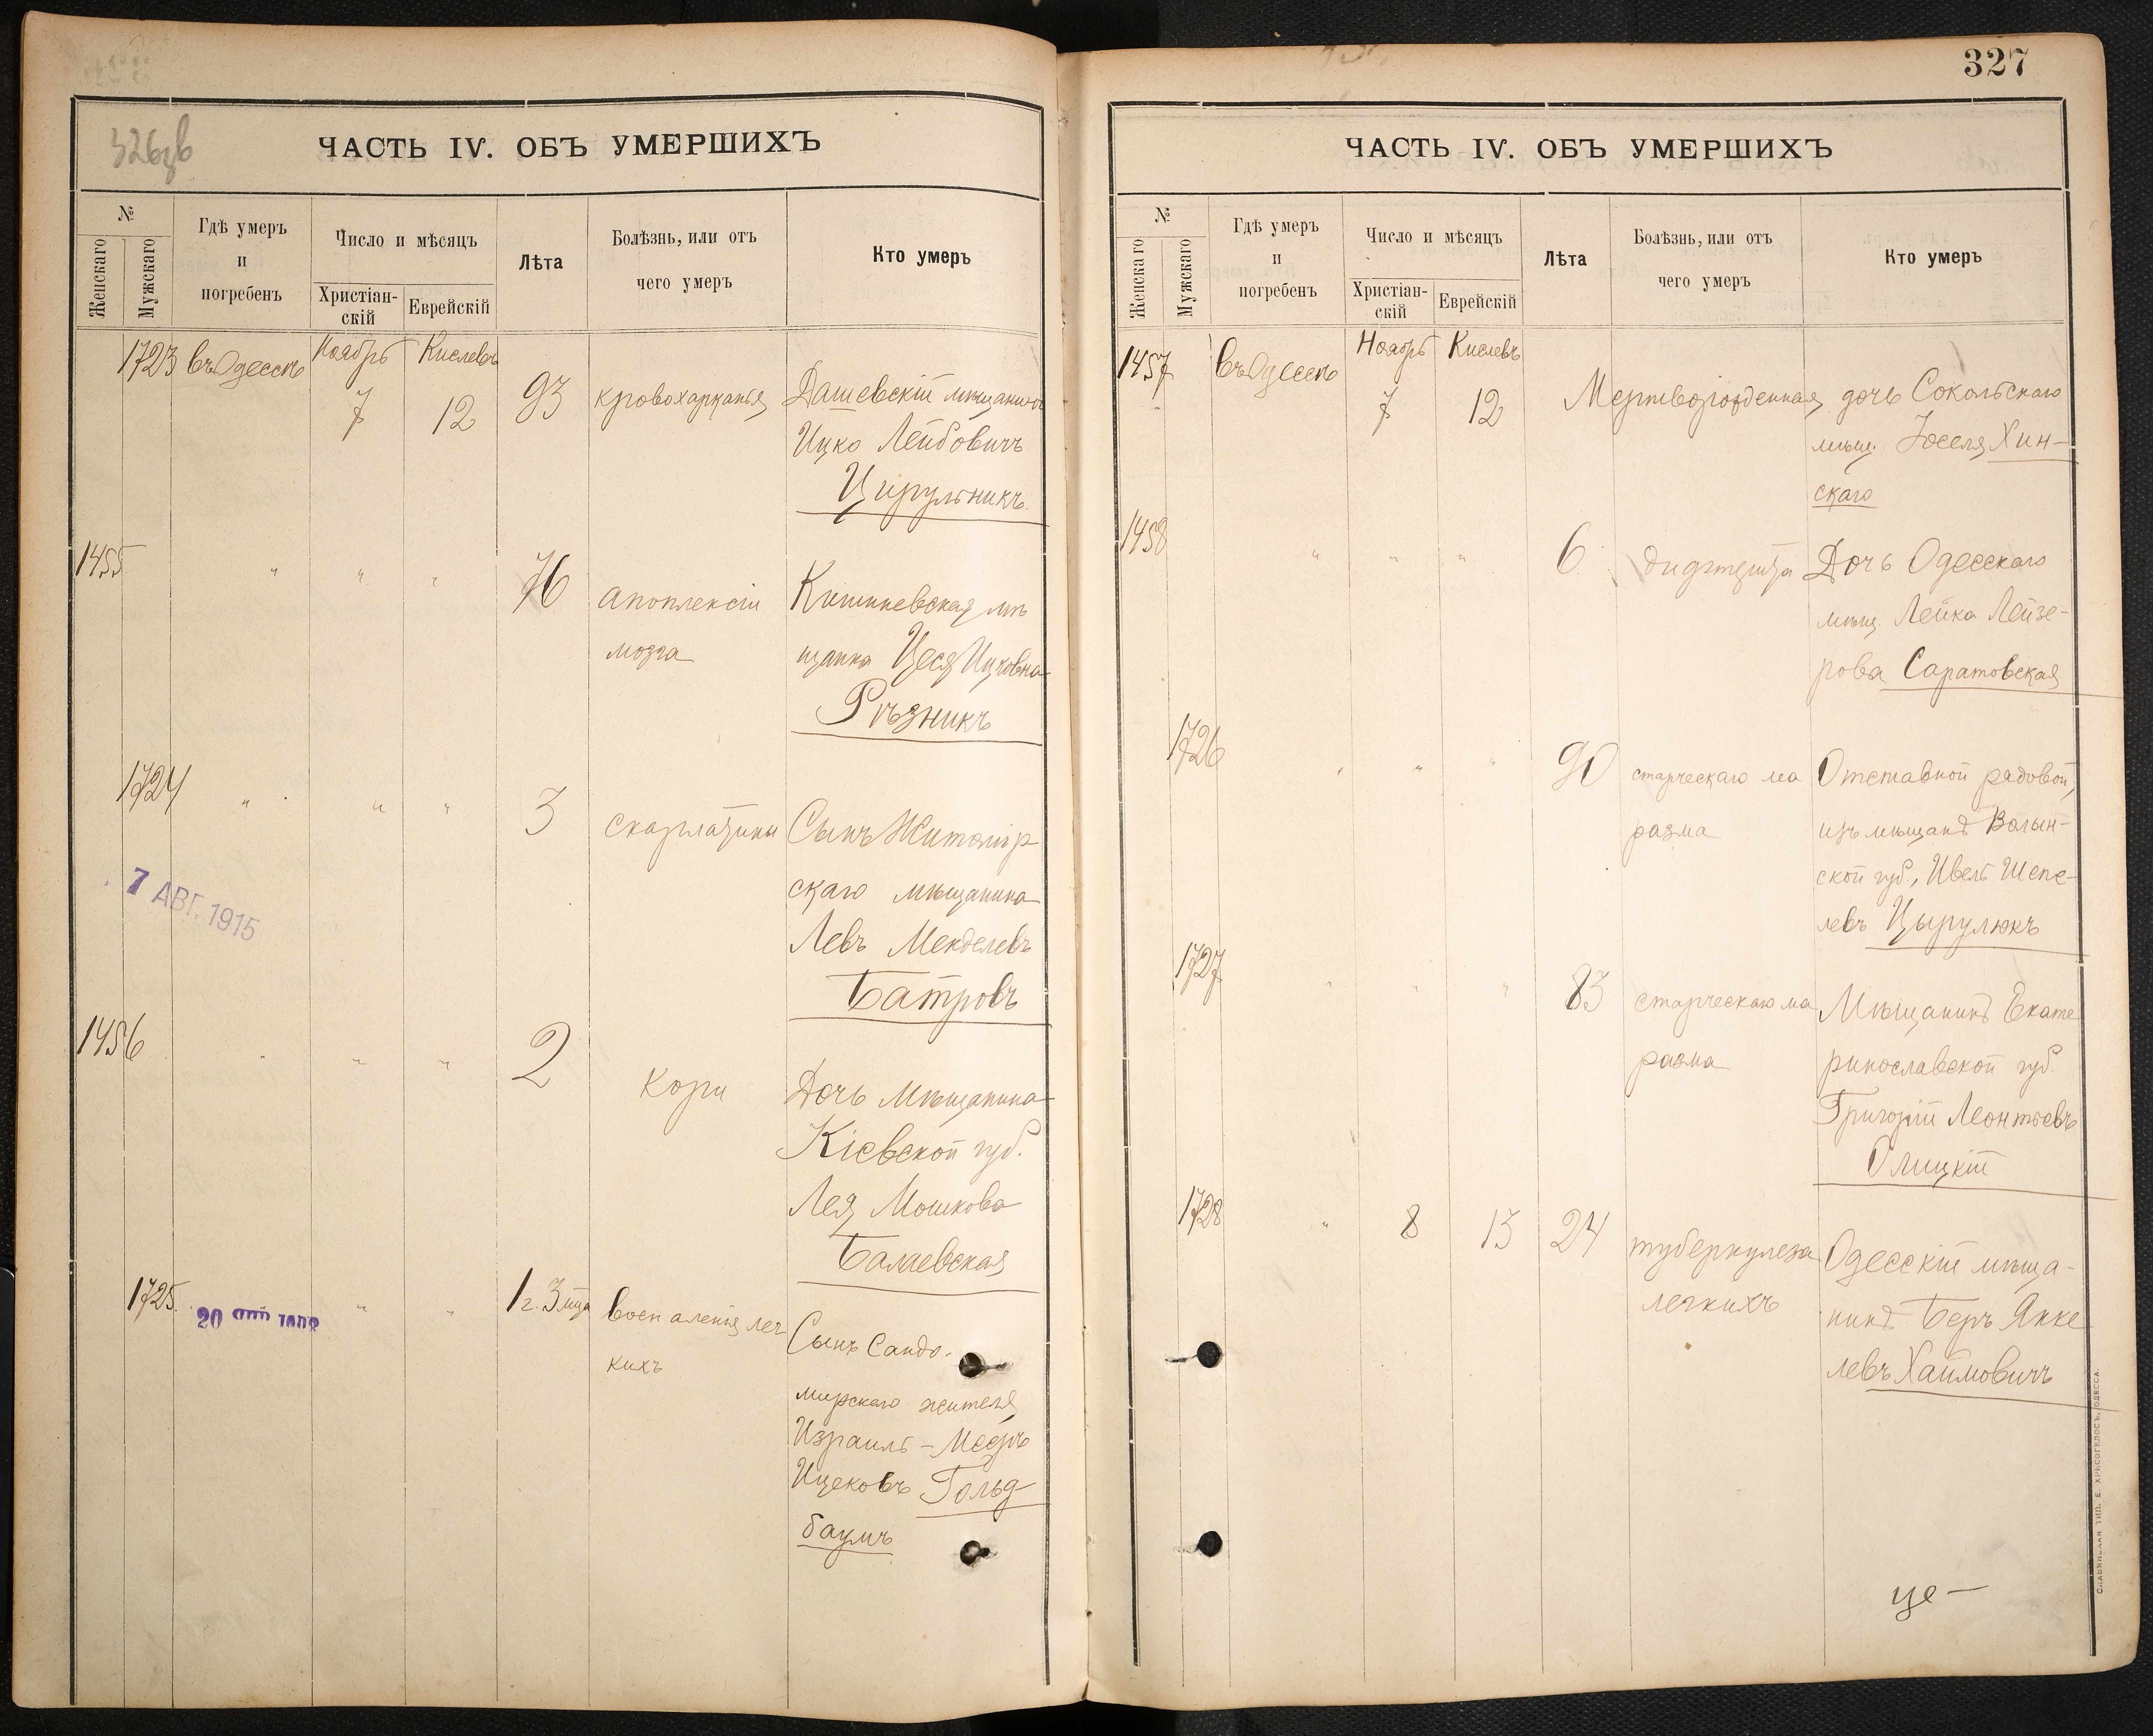 326об
ЧАСТЬ IV. ОБЪ УМЕРШИХЪ
№
Женскаго
Мужскаго
Гдѣ умеръ
и
погребенъ
Число и мѣсяцъ
Христіан-
скій
Еврейскій
Лѣта
Болѣзнь, или отъ
чего умеръ
Кто умеръ
1723 въ Одессѣ Ноябрь Кислевъ
7 12 93 кровохарканья Дашевскій мѣщанинъ
Ицко Лейбовичъ
Цирульникъ
1455 " " " 76 апоплексіи Кишиневская мѣ
мозга щанка Цеся Ицковна
Рѣзникъ
1724 " " " 3 скарлатины Сынъ Житомір
скаго мѣщанина
Левъ Менделевъ
Батровъ
7 АВГ. 1915
1456 " " " 2 кори Дочь мѣщанина
Кіевской губ.
Лея Мошкова
Балаевская
1725 " " 1 г. 3 мца воспаленія лег
кихъ
20
Сынъ Сандо-
мирскаго жителя
Израиль-Мееръ
Ицековъ Гольд
баумъ
327
ЧАСТЬ IV. ОБЪ УМЕРШИХЪ
№
Женскаго
Мужскаго
Гдѣ умеръ
и
погребенъ
Число и мѣсяцъ
Христіан-
скій
Еврейскій
Лѣта
Болѣзнь, или отъ
чего умеръ
Кто умеръ
1457 въ Одессѣ Ноябрь Кислевъ
7 12 Мертворожденная дочь Сокольскаго
мѣщ. Іоселя Хин-
скаго
1458 " " " 6 дифтерита Дочь Одесскаго
мѣщ. Лейка Лейзе-
рова Саратовская
1726 " " " 90 старческаго ма Отставной рядовой,
разма изъ мѣщанъ Волын-
ской губ., Ивель Шепе-
левъ Цырулюкъ
1727 " " " 83 старческаго ма Мѣщанинъ Екате
разма ринославской губ.
Григорій Леонтьевъ
Олицкій
1728 " 8 13 24 туберкулеза Одесскій мѣща-
легкихъ нинъ Беръ Янке
левъ Хаимовичъ
це—
СЛАВЯНСКАЯ ТИП. Е. ХРИСОГЕЛОСЪ, ОДЕССА.